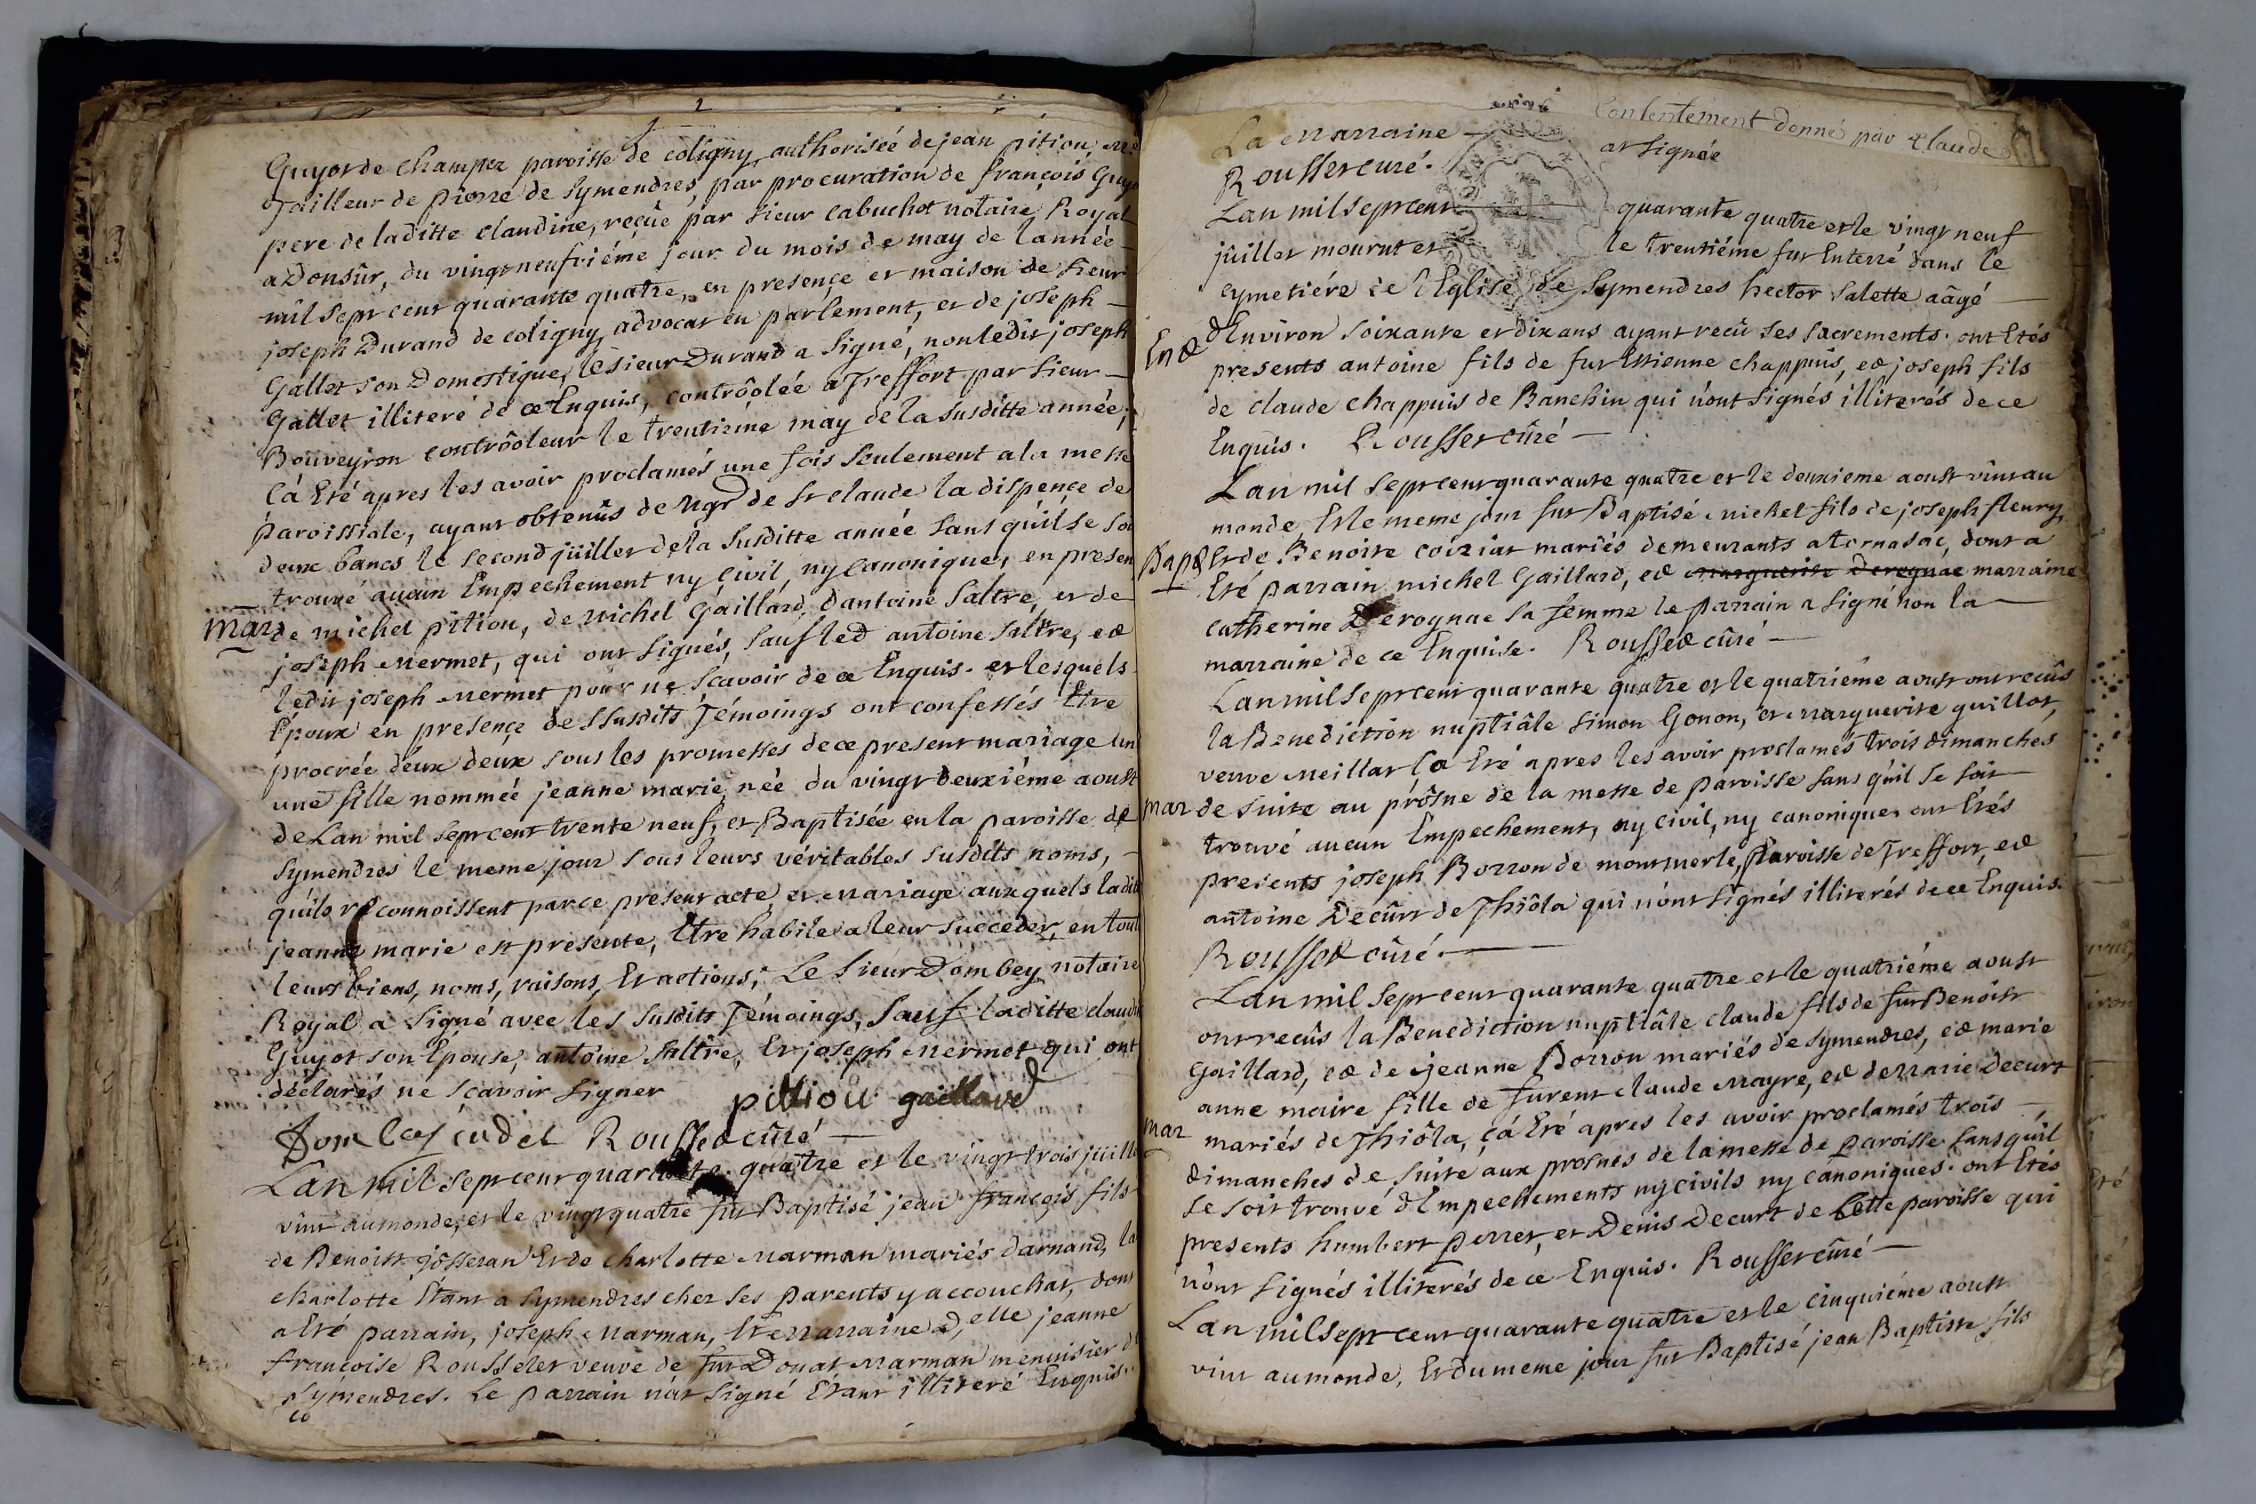 Guyot de champez paroisse de coligny authorisée de jean pition
Tailleur de pierre de Symendres, par procuration de françois Guyo
pere de laditte claudine, reçuë par sieur cabuchot notaire Royal
a Donsûr, du vingt neufviéme jour du mois de may de lannée
mil sept cent quarante quatre, en presençe et maison de sieur
joseph Durand de coligny, advocat en parlement, et de joseph
Gallet son Domestique, le sieur Durand a signé, non ledit joseph
Gallet illiteré de ce Enquis, contrôolée a Treffort par sieur
Bouveyron contrôoleur le trentiéme may de la susditte année;
çá Eté apres les avoir proclamés une fois seulement a la messe
paroissiale, ayant obtenûs de Mgr de St claude la dispençe de
deux bancs le second jüillet de la susditte année sans quíl se soi
trouvé auçun Empechement ny civil, ny canonique, en presen
Mar
de michel pition, de Michel Gaillard, dantoine saltre, et de
joseph Mermet, qui ont signés, sauf led antoine saltre, et
ledit joseph Mermet pour ne scavoir de ce Enquis. et lesquels
Epoux en presençe desSusdits Témoings ont confessés Etre
procrée déux déux sous les promesses de ce present mariage
une fille nommée jeanne marie, née du vingt deuxiéme aoust
de Lan mil sept cent trente neuf, et Baptisée en la paroisse de
Symendres le meme jour sous leurs véritables susdits noms,
quíls reconnoissent par ce present acte et Mariage auxquels ladit
jeanne marie est presente, Etre habile a leur succeder, en tout
leurs biens, noms, raisons, Et actions; Le sieur Dombey notaire
Royal a signé avec les susdits Témoings, sauf laditte claudi
Guyot son Epouse, antoine saltre, Et joseph Mermet qui ont
déclarés ne sçavoir signer
pittiou gaillard
Dombey cadet Rousset cûré
Lan mil sept cent quarante quatre et le vingt trois jüille
vint au monde, et le vingt quatre fut Baptisé jean françois fils
de Benoist josseran Et de charlotte Marman mariés darnand, la
charlotte Etant a symendres chez ses parents y accouchat, dont
a Eté parrain, joseph Marman, Et Marraine d, elle jeanne
françoise Rousselet veuve de fut Donat Marman menuisier d
Symendres. Le parrain nát signé Etant illiteré Enquis.
Consentement donné par claude
La Marraine at signée
Rousset curé.
Lan mil sept cent quarante quatre et le vingt neuf
jüillet mourut et le trentiéme fut Enterré dans le
cymetiére de lEglise de Symendres hector Salette aâgé
Ent
dEnviron soixante et dix ans ayant reçû ses sacrements. ont Etés
presents antoine fils de fut Ettienne chappuis, et joseph fils
de claude chappuis de Banchin qui nónt signés illiterés de ce
Enquis. Rousset cûré
Lan mil sept cent quarante quatre et le deuxieme aoust vint au
monde Et le meme jour fut Baptisé Michel fils de joseph fleury
Bapt
Et de Benoite coiziat mariés demeurants a tornasac, dont a
Eté parrain michel Gaillard, et marguerite Derognat marraine
catherine Derognat sa femme le parrain a signé non la
marraine de ce Enquise. Rousset cûré
Lan mil sept cent quarante quatre et le quatriéme aoust ont reçûs
la Benediction nuptiâle simon Gonon, et Marguerite guillot,
veuve Meillat çá Eté apres les avoir proclamés trois dimanches
mar
de suite au prôsne de la messe de paroisse sans quíl se soit
trouvé aucun Empechement, ny civil, ny canonique. ont Etés
presents joseph Borron de montmerle, paroisse de Treffort, et
antoine Decûrt de Thiôla qui nónt signés illiterés de ce Enquis.
Rousset cûré.
Lan mil sept cent quarante quatre et le quatriéme aoust
ont reçûs la Benediction nuptiâle claude fils de fut Benoist
Gaillard, et de jeanne Borron mariés de symendres, et marie
anne maire fille de furent claude Mayre, et de Marie Decurt
mar
mariés de Thiôla, çá Eté apres les avoir proclamés trois
dimanches de suite aux prosnes de la messe de paroisse sans quíl
se soit trouvé dEmpechements ny civils ny canoniques. ont Etés
presents humbert perret, et Denis Decurt de Cette paroisse qui
nónt signés illiterés de ce Enquis. Rousset cûré
Lan mil sept cent quarante quatre et le cinquiéme aoust
vint au monde, Et du meme jour fut Baptisé jean Baptiste fils